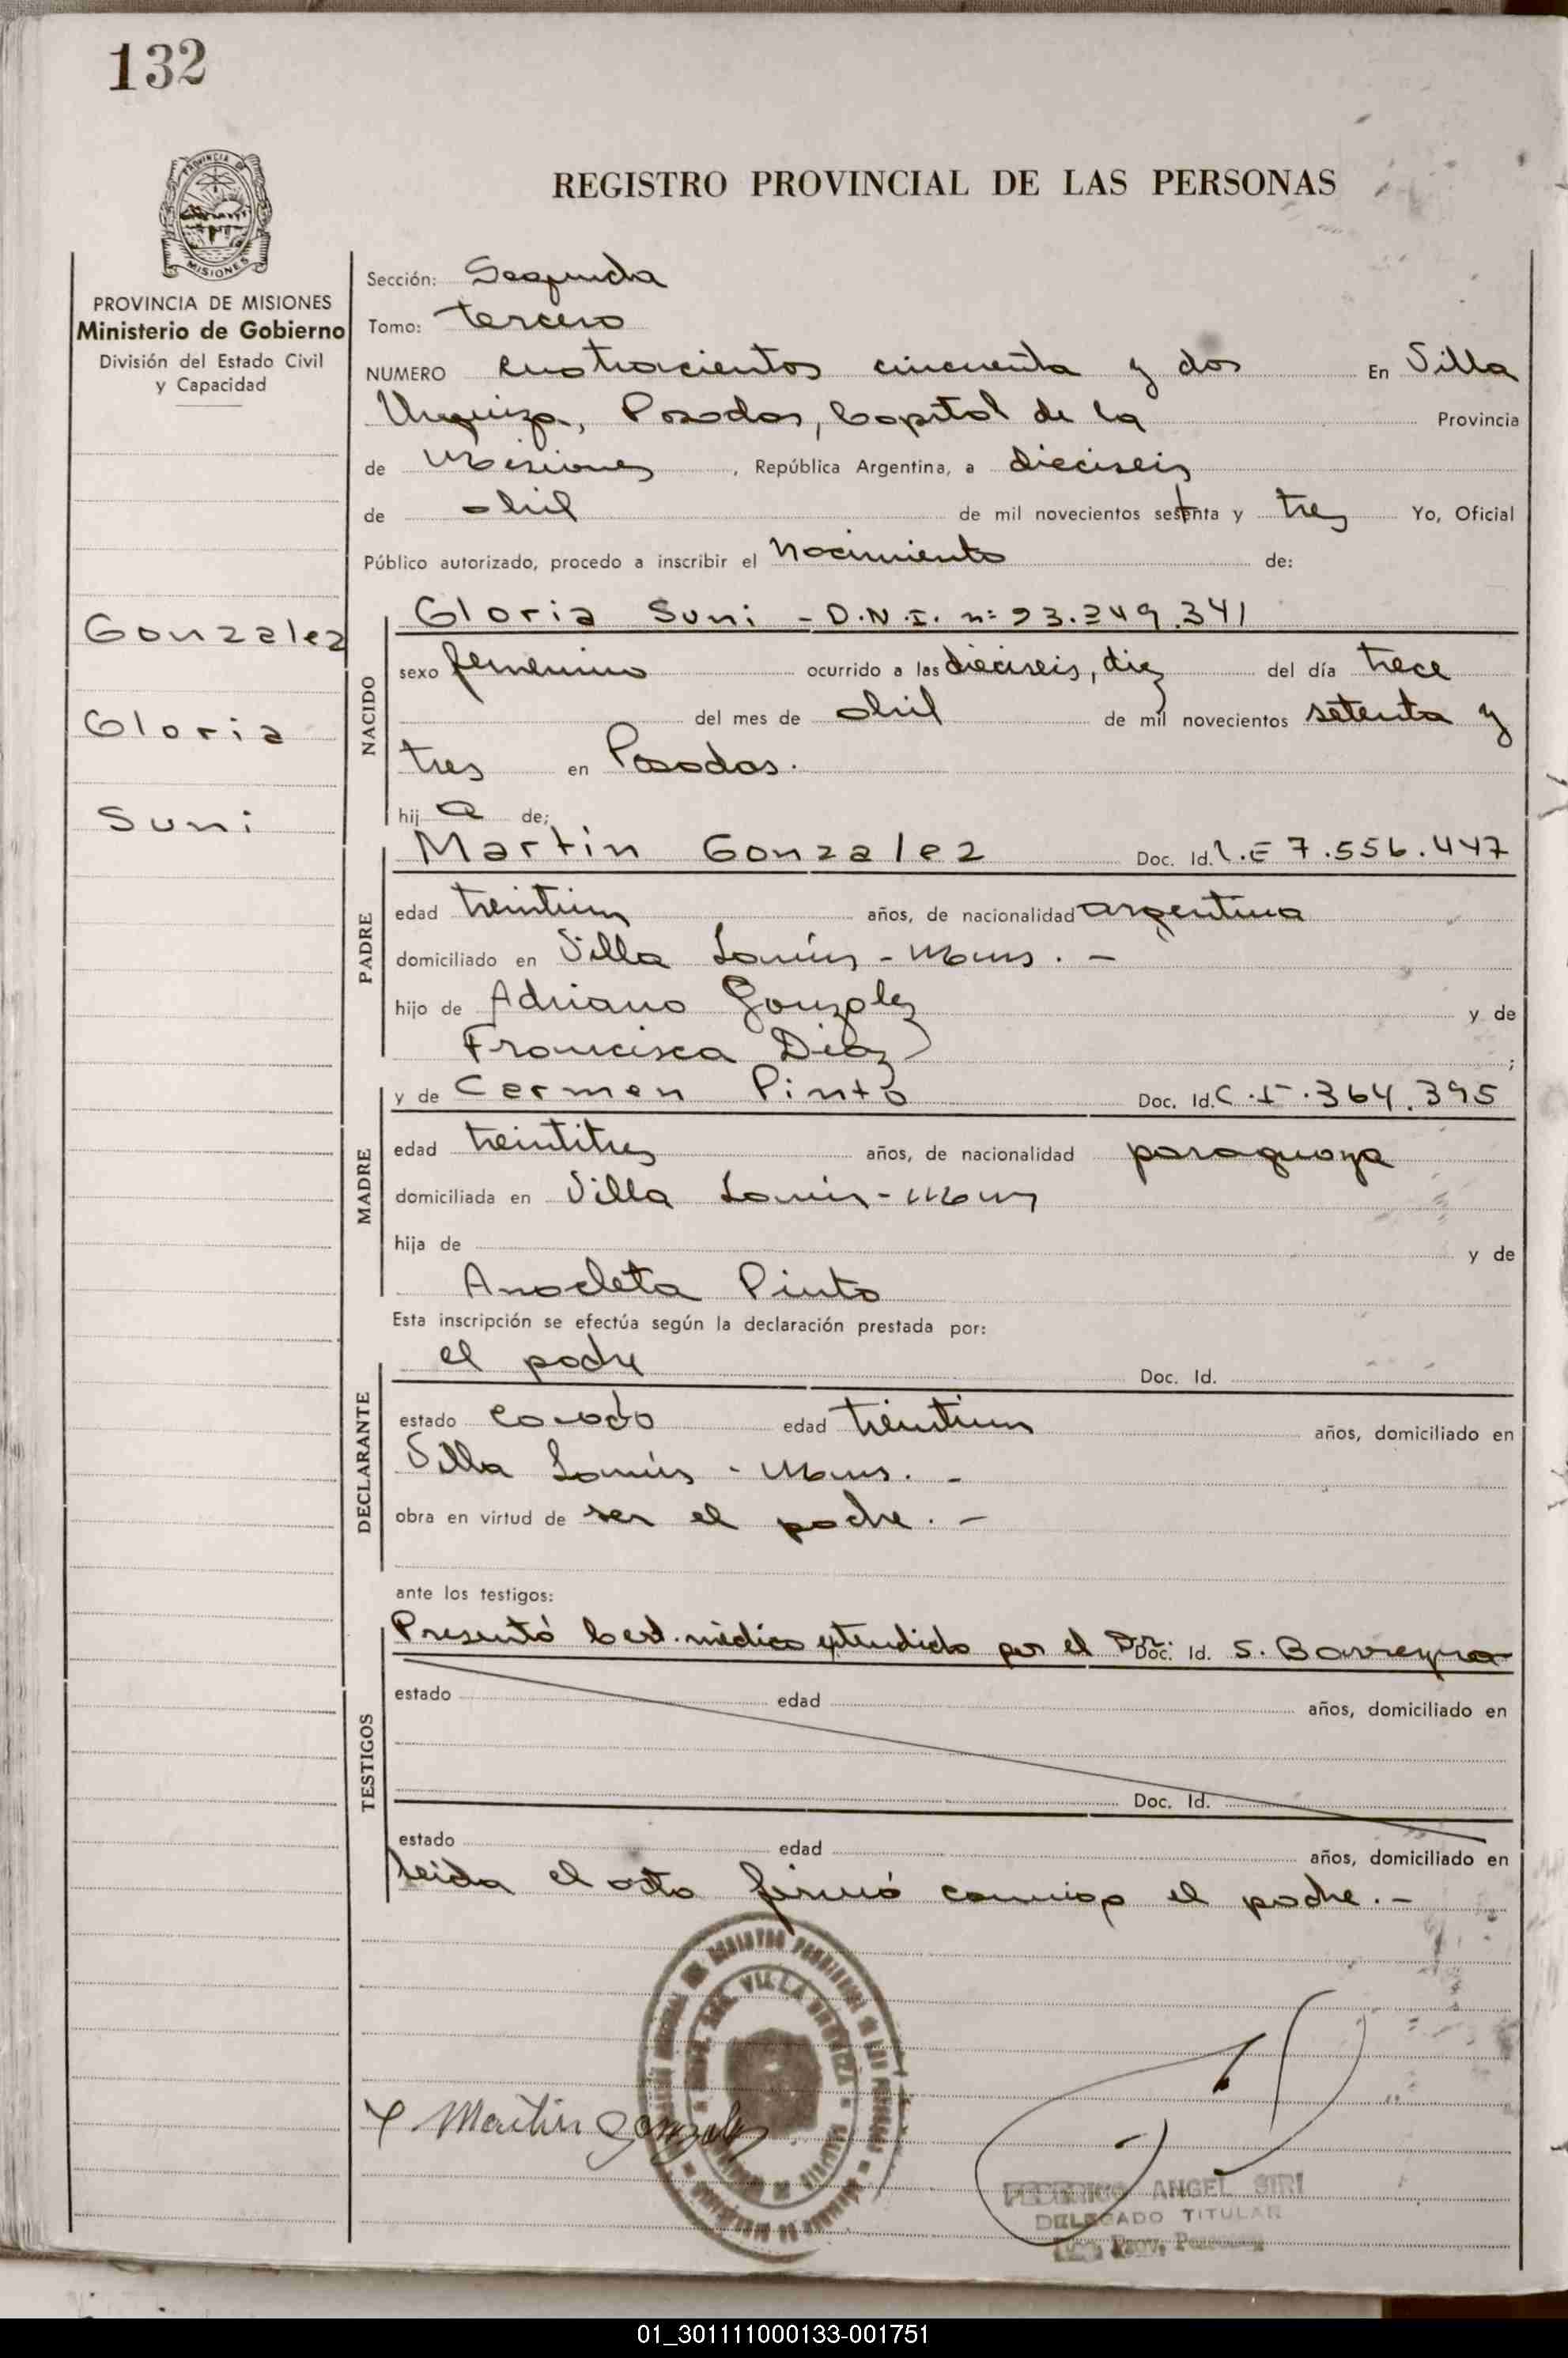 132
PROVINCIA DE
MISIONES
REGISTRO PROVINCIAL DE LAS PERSONAS
PROVINCIA DE MISIONES
Ministerio de Gobierno
División del Estado Civil
y Capacidad
Gonzalez
Gloria
Suni
Sección: Segunda
Tomo: tercero
NUMERO cuatrocientos cincuenta y dos En Villa
Urquiza, Posadas, Capital de la Provincia
de Misiones, República Argentina, a dieciseis
de abril de mil novecientos setenta y tres Yo, Oficial
Público autorizado, procedo a inscribir el Nacimiento de:
NACIDO
Gloria Suni - D.N.I. nº 23.249.341
sexo femenino ocurrido a las dieciseis, diez del día trece
del mes de abril de mil novecientos setenta y
tres en Posadas.
hij a de;
PADRE
Martin Gonzalez Doc. Id. L.E 7.556.447
edad treintiun años, de nacionalidad argentina
domiciliado en Villa Lanús - Mnes. -
hijo de Adriano Gonzalez y de
Francisca Diaz ;
MADRE
y de Carmen Pinto Doc. Id. C.I.364.395
edad treintitres años, de nacionalidad paraguaya
domiciliada en Villa Lanús - Mnes
hija de y de
Anacleta Pinto
Esta inscripción se efectúa según la declaración prestada por:
DECLARANTE
el padre Doc. Id.
estado casado edad treintiun años, domiciliado en
Villa Lanús - Mnes. -
obra en virtud de ser el padre. -
ante los testigos:
TESTIGOS
Presentó Cert. médico extendido por el Dr. Doc. Id. S. Barreyro
estado edad años, domiciliado en
Doc. Id.
estado edad años, domiciliado en
leida el acta firmó conmigo el padre. -
VILLA URQUIZA
Martin Gonzalez
FEDERICO ANGEL SIRI
DELEGADO TITULAR
Prov. Personas
01_301111000133-001751